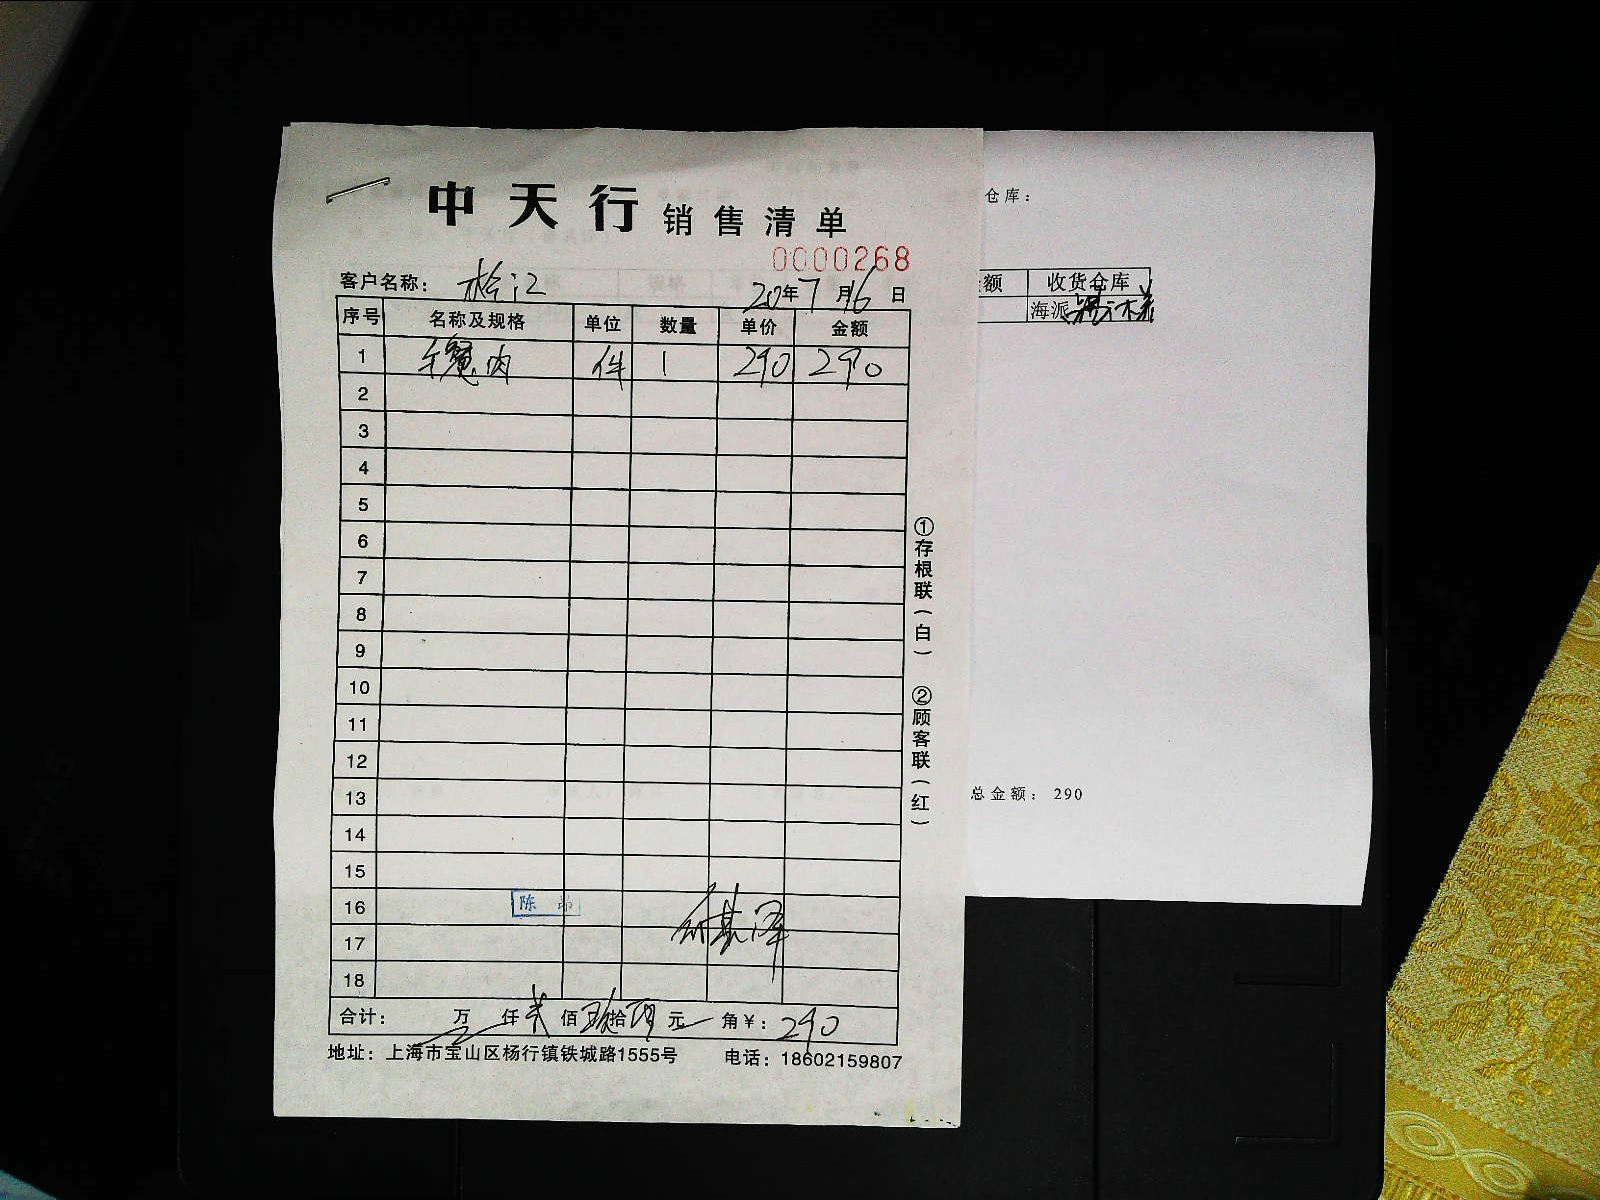 中天行 销售清单
0000268
客户名称: 松江 20年7月16日
序号 名称及规格 单位 数量 单价 金额
1 蟹肉 件 1 290 290
2
3
4
5
6
7
8
9
10
11
12
13
14
15
16 陈
17
18
合计: 万 仟 贰 佰 玖 拾 元 角 ¥: 290
地址: 上海市宝山区杨行镇铁城路1555号 电话: 18602159807
①存根联(白) ②顾客联(红)
仓库:
额 收货仓库
海派
总金额: 290